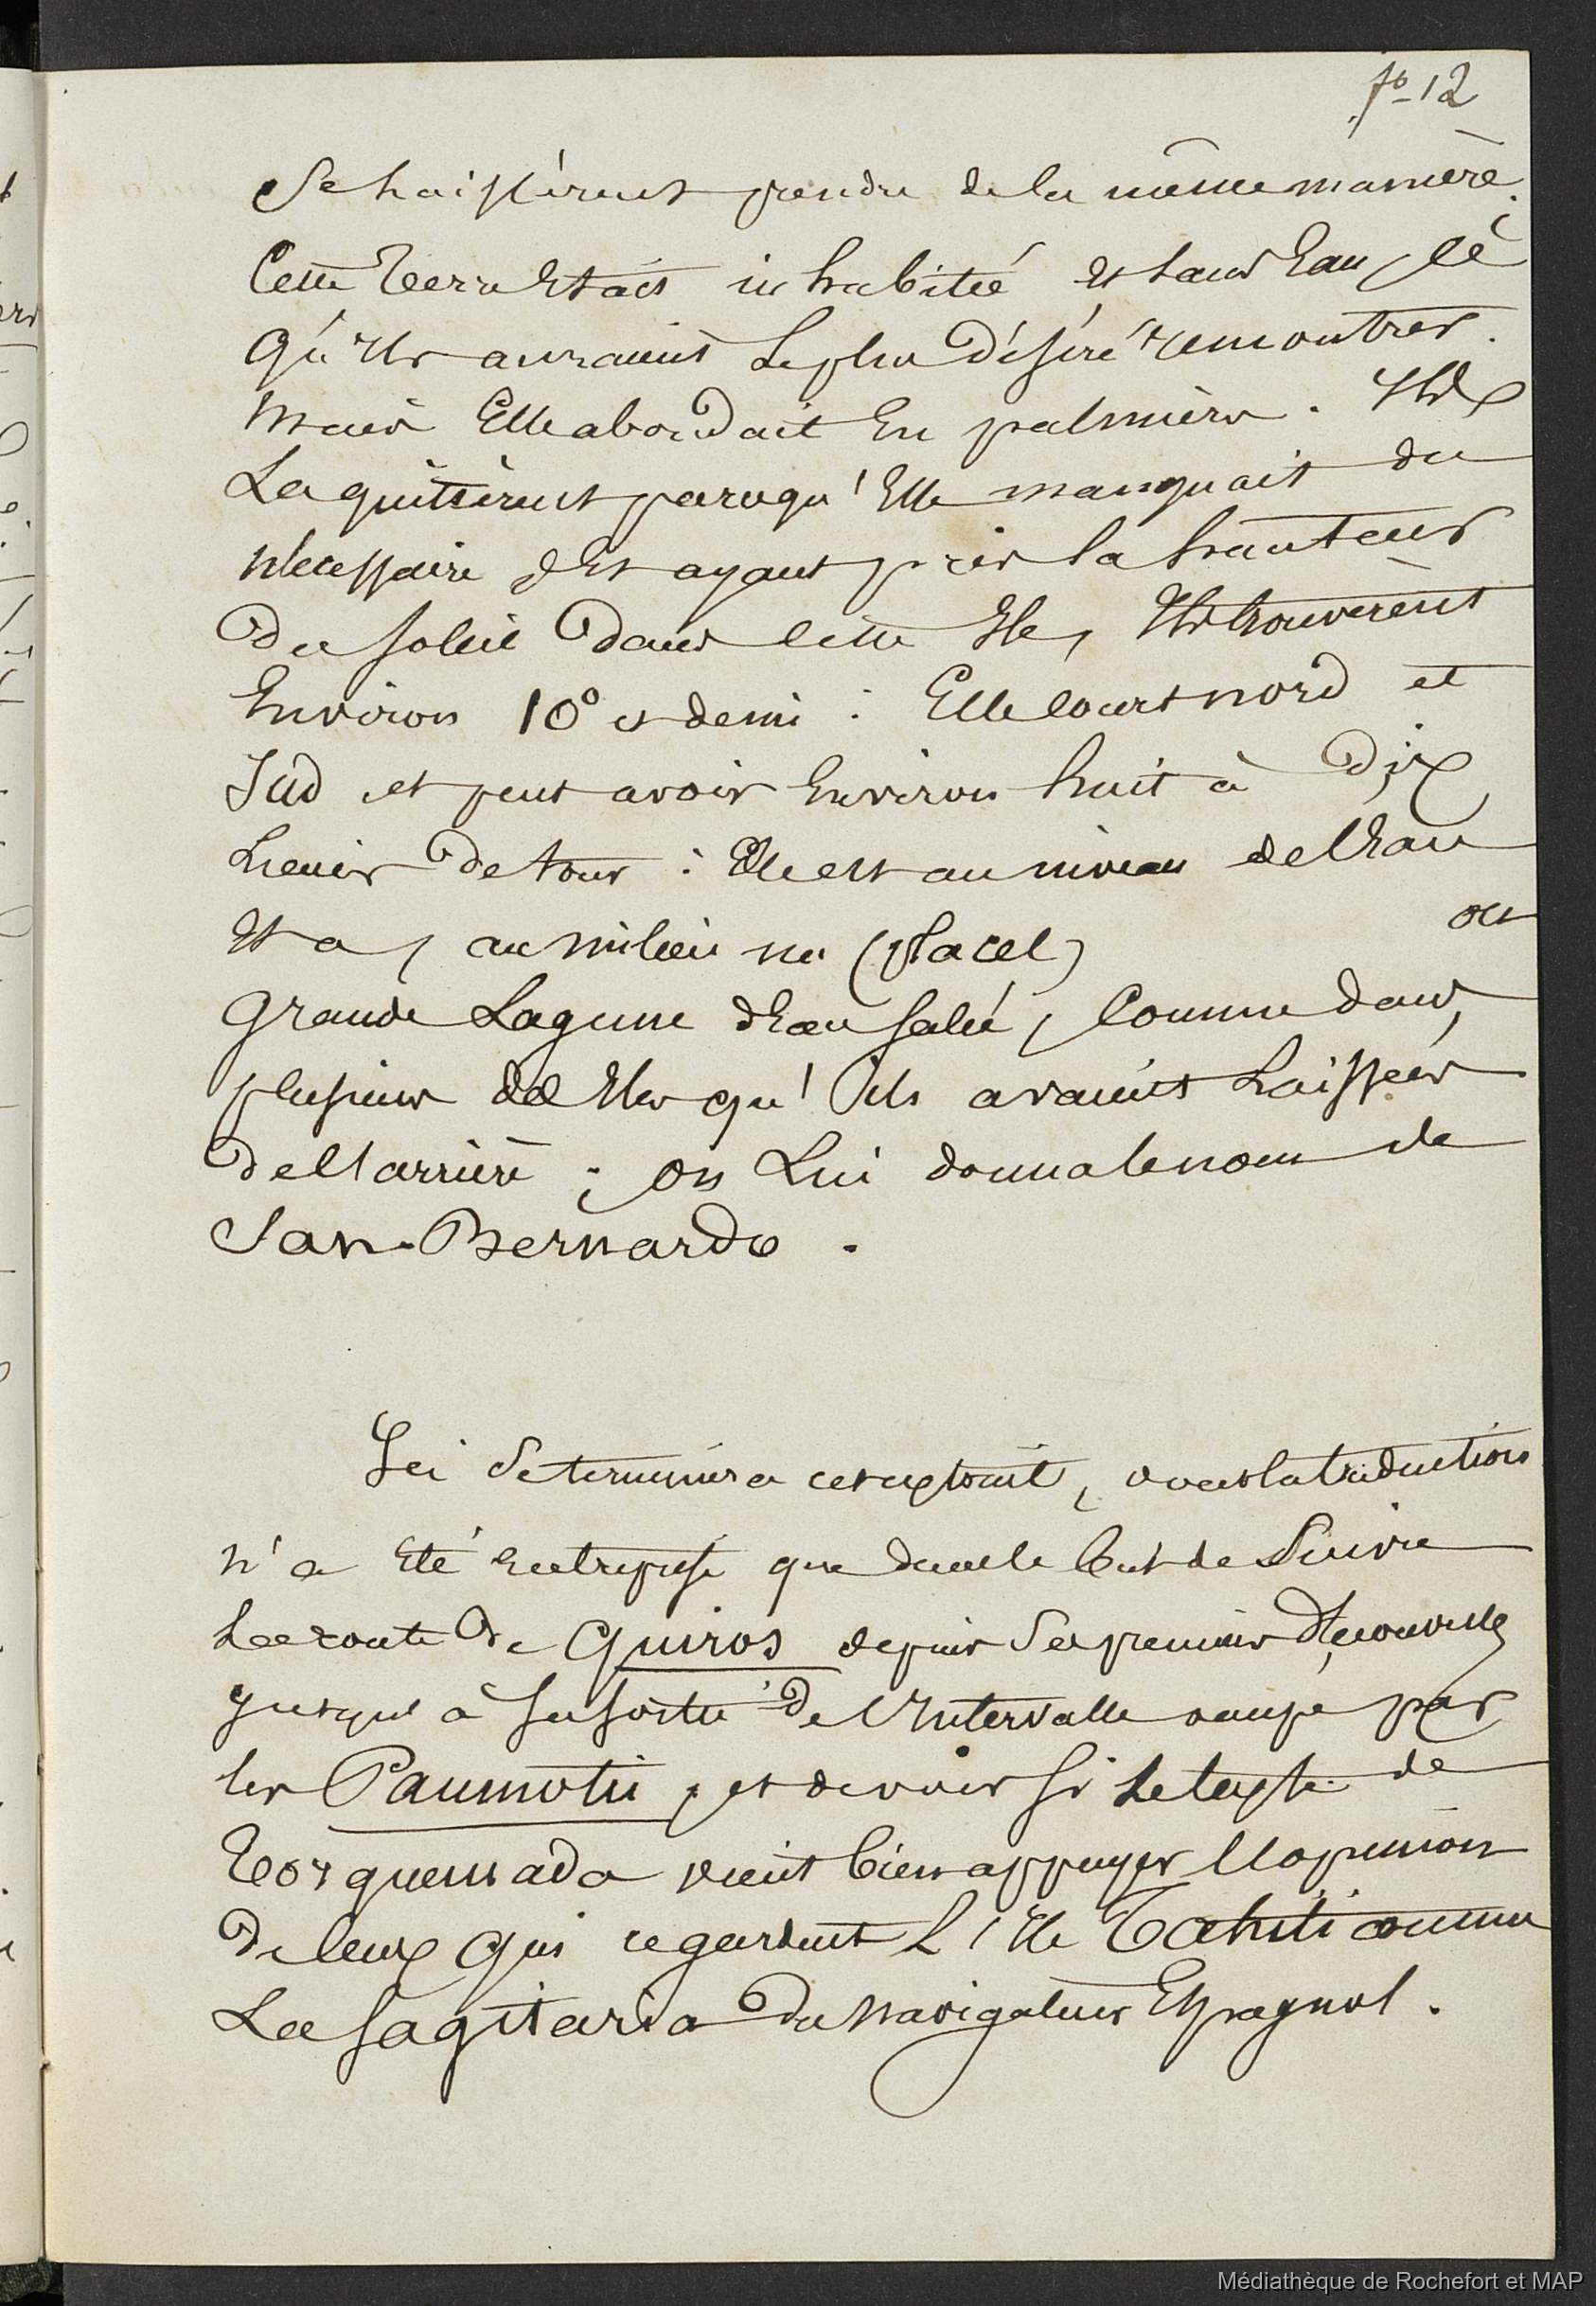 fo 12
Se laissèrent prendre de la même manière.
Cette terre Etait inhabitée et sans Eau, ce
qu'Ils auraient Le plus désiré rencontrer.
Mais Elle abondait En palmiers. Ils
La quittèrent parcequ'Elle manquait du
nécessaire Et ayant pris la hauteur
Du soleil Dans cette Ile, Ils trouvèrent
Environ 10° et demi : Elle court nord et
Sud et peut avoir Environ huit à Dix
Lieues De tour : Elle est au niveau de l'Eau
Et a, au milieu un (placel) ou
Grande Lagune d'Eau salée, Comme dans
plusieurs des Iles qu'Ils avaient Laissées
De l'arrière ; on Lui donna le nom de
San-Bernardo .
Ici Se terminera cet extrait, dont la traduction
n'a Eté Entreprise que dans le but de Suivre
La route De Quiros depuis Ses premières Découvertes
jusqu'à sa sortie De l'Intervalle occupé par
les Paumotu, et de voir si Le texte de
Torquemada vient bien appuyer l'opinion
De Ceux Qui regardent L'Ile Tahiti comme
La Sagitaria Du Navigateur Espagnol .
Médiathèque de Rochefort et MAP